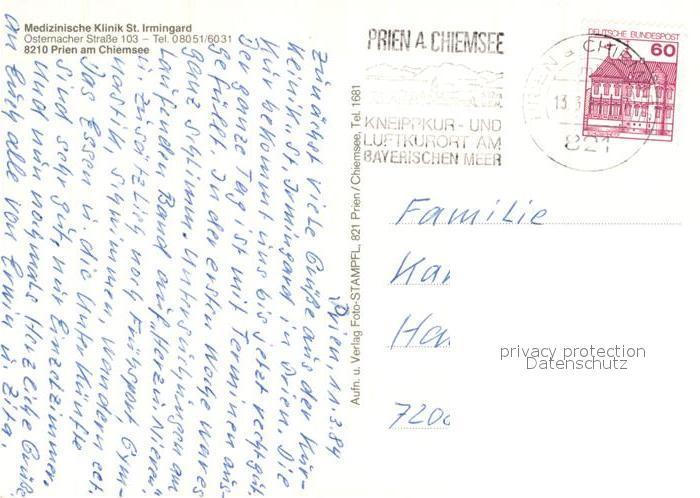 Medizinische Klinik St. Irmingard
Osternacher Straße 103 – Tel. 08051/6031
8210 Prien am Chiemsee
PRIEN A. CHIEMSEE
KNEIPPKUR- UND
LUFTKURORT AM
BAYERISCHEN MEER
DEUTSCHE BUNDESPOST
60
13.3
821
Prien, 11.3.84
Zunächst viele Grüße aus der Kur-
klinik „St. Irmingard in Prien. Die
Kur bekommt uns bis jetzt recht gut.
Der ganze Tag ist mit Terminen aus-
gefüllt. In der ersten Woche war es
ganz schlimm. Untersuchungen am
laufenden Band auf „Herz u. Nieren",
u. zusätzlich noch Frühsport Gym-
nastik, Schwimmen, wandern ect.
Das Essen u. die Unterkünfte
sind sehr gut, nur Einzelzimmer.
Und nun nochmals Herzliche Grüße
an Euch alle von Erwin u. Zita.
Aufn. u. Verlag Foto-STAMPFL, 821 Prien/Chiemsee, Tel. 1681
Familie
Ka
Ha
720
privacy protection
Datenschutz